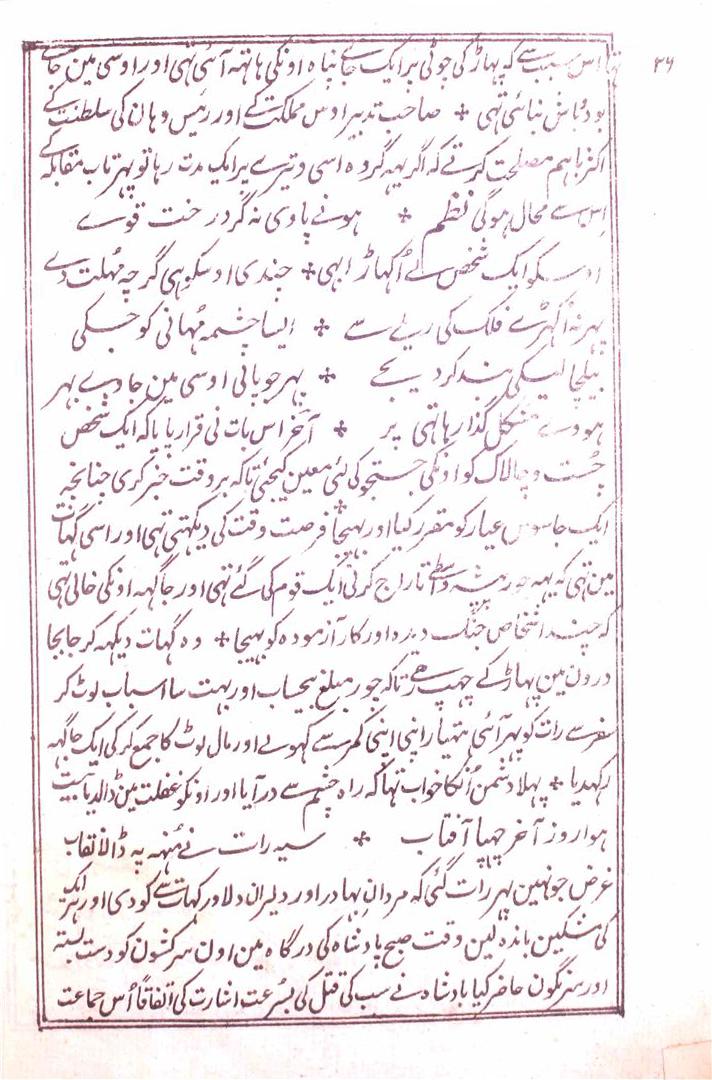 ۲۶
تھا اس سبب سے کہ پہاڑ کی چوٹی پر ایک جائے پناہ اونکی ہاتھہ آئی تہی اور اوسی مین جائے
بود و باش بنائی تہی ※ صاحب تدبیر اوس مملکت کے اور رئیس وہان کی سلطنت کے
اکثر باہم مصلحت کرتے کہ اگر یہہ گروہ اسی وتیرے پر ایک مدت رہا تو پہر تاب مقابلہ کے
اس سے محال ہوگی نظم ※ ہونے پاوی نہ گر درخت قوے
اوسکو ایک شخص لے اُکھاڑ ابہی ※ چندی اوسکو ہی گرچہ مُہلت دے
پہر نہ اُکہڑے فلک کی ریلے سے ※ ایسا چشمہ مُہانی کو جسکی
بیلچا لیکی بند کر دیجے ※ پہر جو پانی اوسی مین جاوے بہر
ہووے مشکل گذار ہاتہی پر ※ آخر اس بات نی قرار پایا کہ ایک شخص
چُست و چالاک کو اونکی جستجو کی لئی معین کیجئی تاکہ بروقت خبر کری چنانچہ
ایک جاسوس عیار کو مقرر کیا اور بہیجا فرصت وقت کی دیکہتی تہی اور اسی گہات
مین تہی کہ یہہ چور واسطے تاراج کرنی ایک قوم کی گئے تہی اور جاگہہ اونکی خالی تہی
کہ چند اشخاص جنگ دیدہ اور کار آزمودہ کو بہیجا ※ وہ گہات دیکہہ کر جابجا
درون مین پہاڑ کے چہپ رہے تاکہ چور مبلغ بیحساب اور بہت سا اسباب لوٹ کر
سفر سے رات کو پہر آئی ہتیار اپنی اپنی کمر سے کہولے اور مال لوٹ کا جمع کر کی ایک جاگہہ
رکہدیا ※ پہلا دشمن اُنکا خواب تہا کہ راہ چشم سے در آیا اور اونکو غفلت مین ڈالدیا بیت
ہوا روز آخر چہپا آفتاب ※ سیہ رات نے مُنہہ پہ ڈالا نقاب
غرض جونہین پہر رات گئی کہ مردان بہادر اور دلیران دلاور گہات سے کودی اور ہر ایک
کی مشکین باندہ لین وقت صبح بادشاہ کی درگاہ مین اون سرکشون کو دست بستہ
اور سرنگون حاضر کیا بادشاہ نے سب کی قتل کی بسُرعت اشارت کی اتفاقاً اُس جماعت